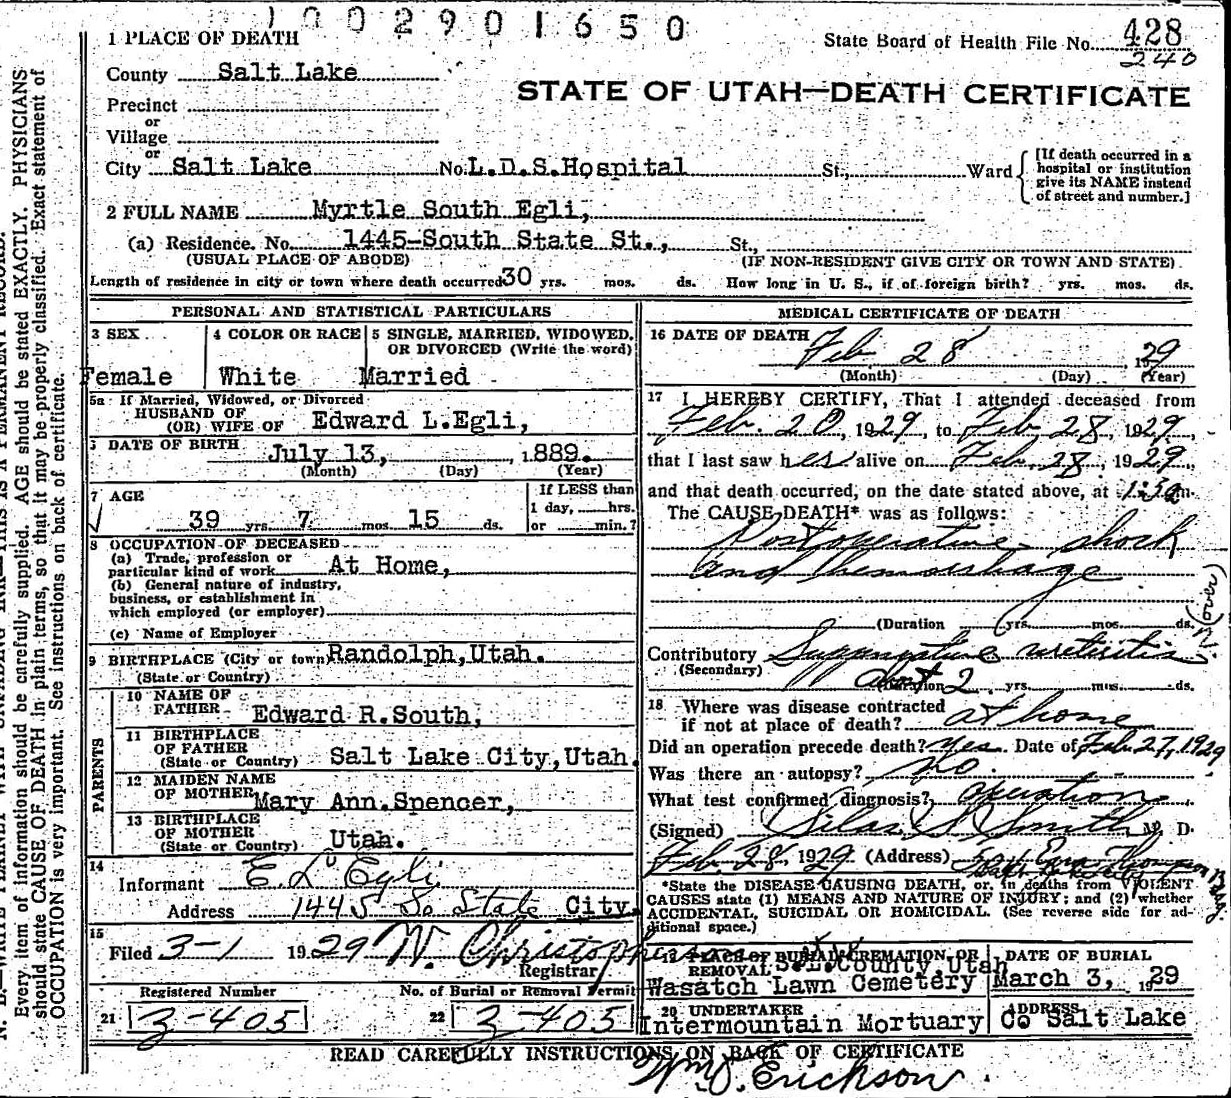 1002901650
1 PLACE OF DEATH
State Board of Health File No. 428
240
County Salt Lake
STATE OF UTAH—DEATH CERTIFICATE
Precinct
or
Village
or
City Salt Lake No. L.D.S.Hospital St., Ward
[If death occurred in a hospital or institution give its NAME instead of street and number.]
2 FULL NAME Myrtle South Egli,
(a) Residence. No. 1445-South State St., St.,
(USUAL PLACE OF ABODE) (IF NON-RESIDENT GIVE CITY OR TOWN AND STATE)
Length of residence in city or town where death occurred 30 yrs. mos. ds. How long in U. S., if of foreign birth? yrs. mos. ds.
PERSONAL AND STATISTICAL PARTICULARS
3 SEX
4 COLOR OR RACE
5 SINGLE, MARRIED, WIDOWED,
OR DIVORCED (Write the word)
Female White Married
5a If Married, Widowed, or Divorced
HUSBAND OF
(OR) WIFE OF Edward L.Egli,
6 DATE OF BIRTH July 13, 1889.
(Month) (Day) (Year)
7 AGE
39 yrs 7 mos 15 ds.
If LESS than
1 day, hrs.
or min.?
8 OCCUPATION OF DECEASED
(a) Trade, profession or
particular kind of work At Home,
(b) General nature of industry,
business, or establishment in
which employed (or employer)
(c) Name of Employer
9 BIRTHPLACE (City or town) Randolph,Utah.
(State or Country)
PARENTS
10 NAME OF
FATHER Edward R.South,
11 BIRTHPLACE
OF FATHER
(State or Country) Salt Lake City,Utah.
12 MAIDEN NAME
OF MOTHER Mary Ann.Spencer,
13 BIRTHPLACE
OF MOTHER
(State or Country) Utah.
14
Informant E L Egli
Address 1445 So State City.
15
Filed 3-1 1929 W. Christopherson
Registrar
Registered Number No. of Burial or Removal Permit
21 3-405 22 3-405
MEDICAL CERTIFICATE OF DEATH
16 DATE OF DEATH
Feb 28 1929
(Month) (Day) (Year)
17 I HEREBY CERTIFY, That I attended deceased from
Feb. 20, 1929, to Feb 28, 1929,
that I last saw her alive on Feb. 28, 1929,
and that death occurred, on the date stated above, at 1:30 am.
The CAUSE DEATH* was as follows:
Postoperative shock
and hemorrhage
(Duration yrs. mos. ds.
(over)
Contributory Suppurative ureteritis
(Secondary)
about (Duration 2 yrs. mos. ds.
18 Where was disease contracted
if not at place of death? at home
Did an operation precede death? yes. Date of Feb. 27, 1929
Was there an autopsy? No.
What test confirmed diagnosis? operation
(Signed) Silas S. Smith M. D.
Feb. 28, 1929 (Address)
*State the DISEASE CAUSING DEATH, or, in deaths from VIOLENT
CAUSES state (1) MEANS AND NATURE OF INJURY; and (2) whether
ACCIDENTAL, SUICIDAL OR HOMICIDAL. (See reverse side for ad-
ditional space.)
19 PLACE OF BURIAL, CREMATION OR
REMOVAL S.L.County,Utah
Wasatch Lawn Cemetery
DATE OF BURIAL
March 3, 1929
20 UNDERTAKER
Intermountain Mortuary
ADDRESS
Co Salt Lake
READ CAREFULLY INSTRUCTIONS ON BACK OF CERTIFICATE
Wm J. Erickson.
Every item of information should be carefully supplied. AGE should be stated EXACTLY. PHYSICIANS
should state CAUSE OF DEATH in plain terms, so that it may be properly classified. Exact statement of
OCCUPATION is very important. See instructions on back of certificate.